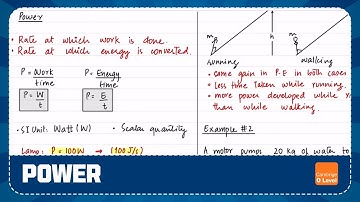 Power
• Rate at which work is done.
• Rate at which energy is converted.
P = Work
time
P = Energy
time
P = W
t
P = E
t
• SI Unit: Watt (W)
• Scalar quantity
Lamp: P = 100W → (100 J/s)
m
h
running
m
h
walking
• same gain in P.E in both cases
• less time taken while running.
• more power developed while
than while walking.
Example #2
A motor pumps 20 kg of water to
POWER
Cambridge
O Level